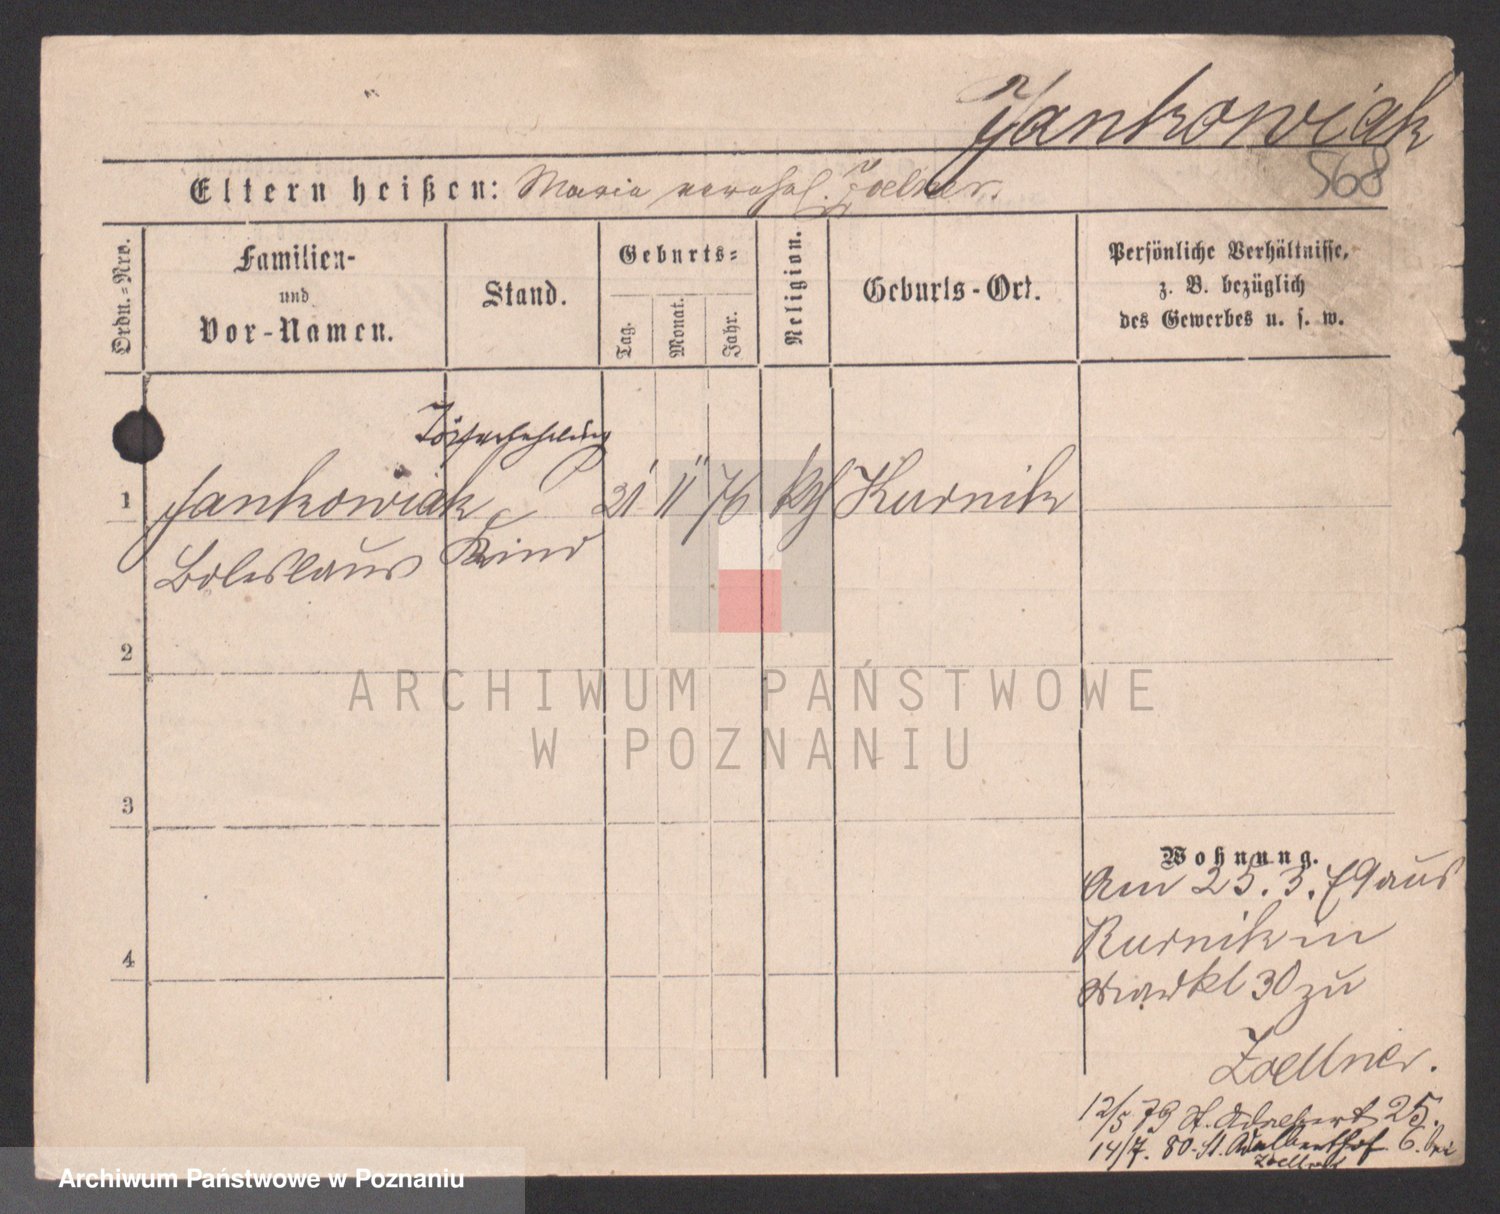 Jankowiak
568
Eltern heißen: Maria verehel. Zoellner.
Ordn.-Nro.
Familien-
und
Vor-Namen.
Stand.
Geburts-
Tag.
Monat.
Jahr.
Religion.
Geburts-Ort.
Persönliche Verhältnisse,
z. B. bezüglich
des Gewerbes u. s. w.
1 Jankowiak 21 11 76 kth Kurnik
Boleslaus Kind
2
ARCHIWUM PAŃSTWOWE
W POZNANIU
3
Wohnung.
Am 25. 3. 79 aus
Kurnik in
4
30 zu
Zoellner.
12/5 79 St. Adalbert 25.
14/7. 80. St. Adalberthof 6. bei
Zoellner
Archiwum Państwowe w Poznaniu